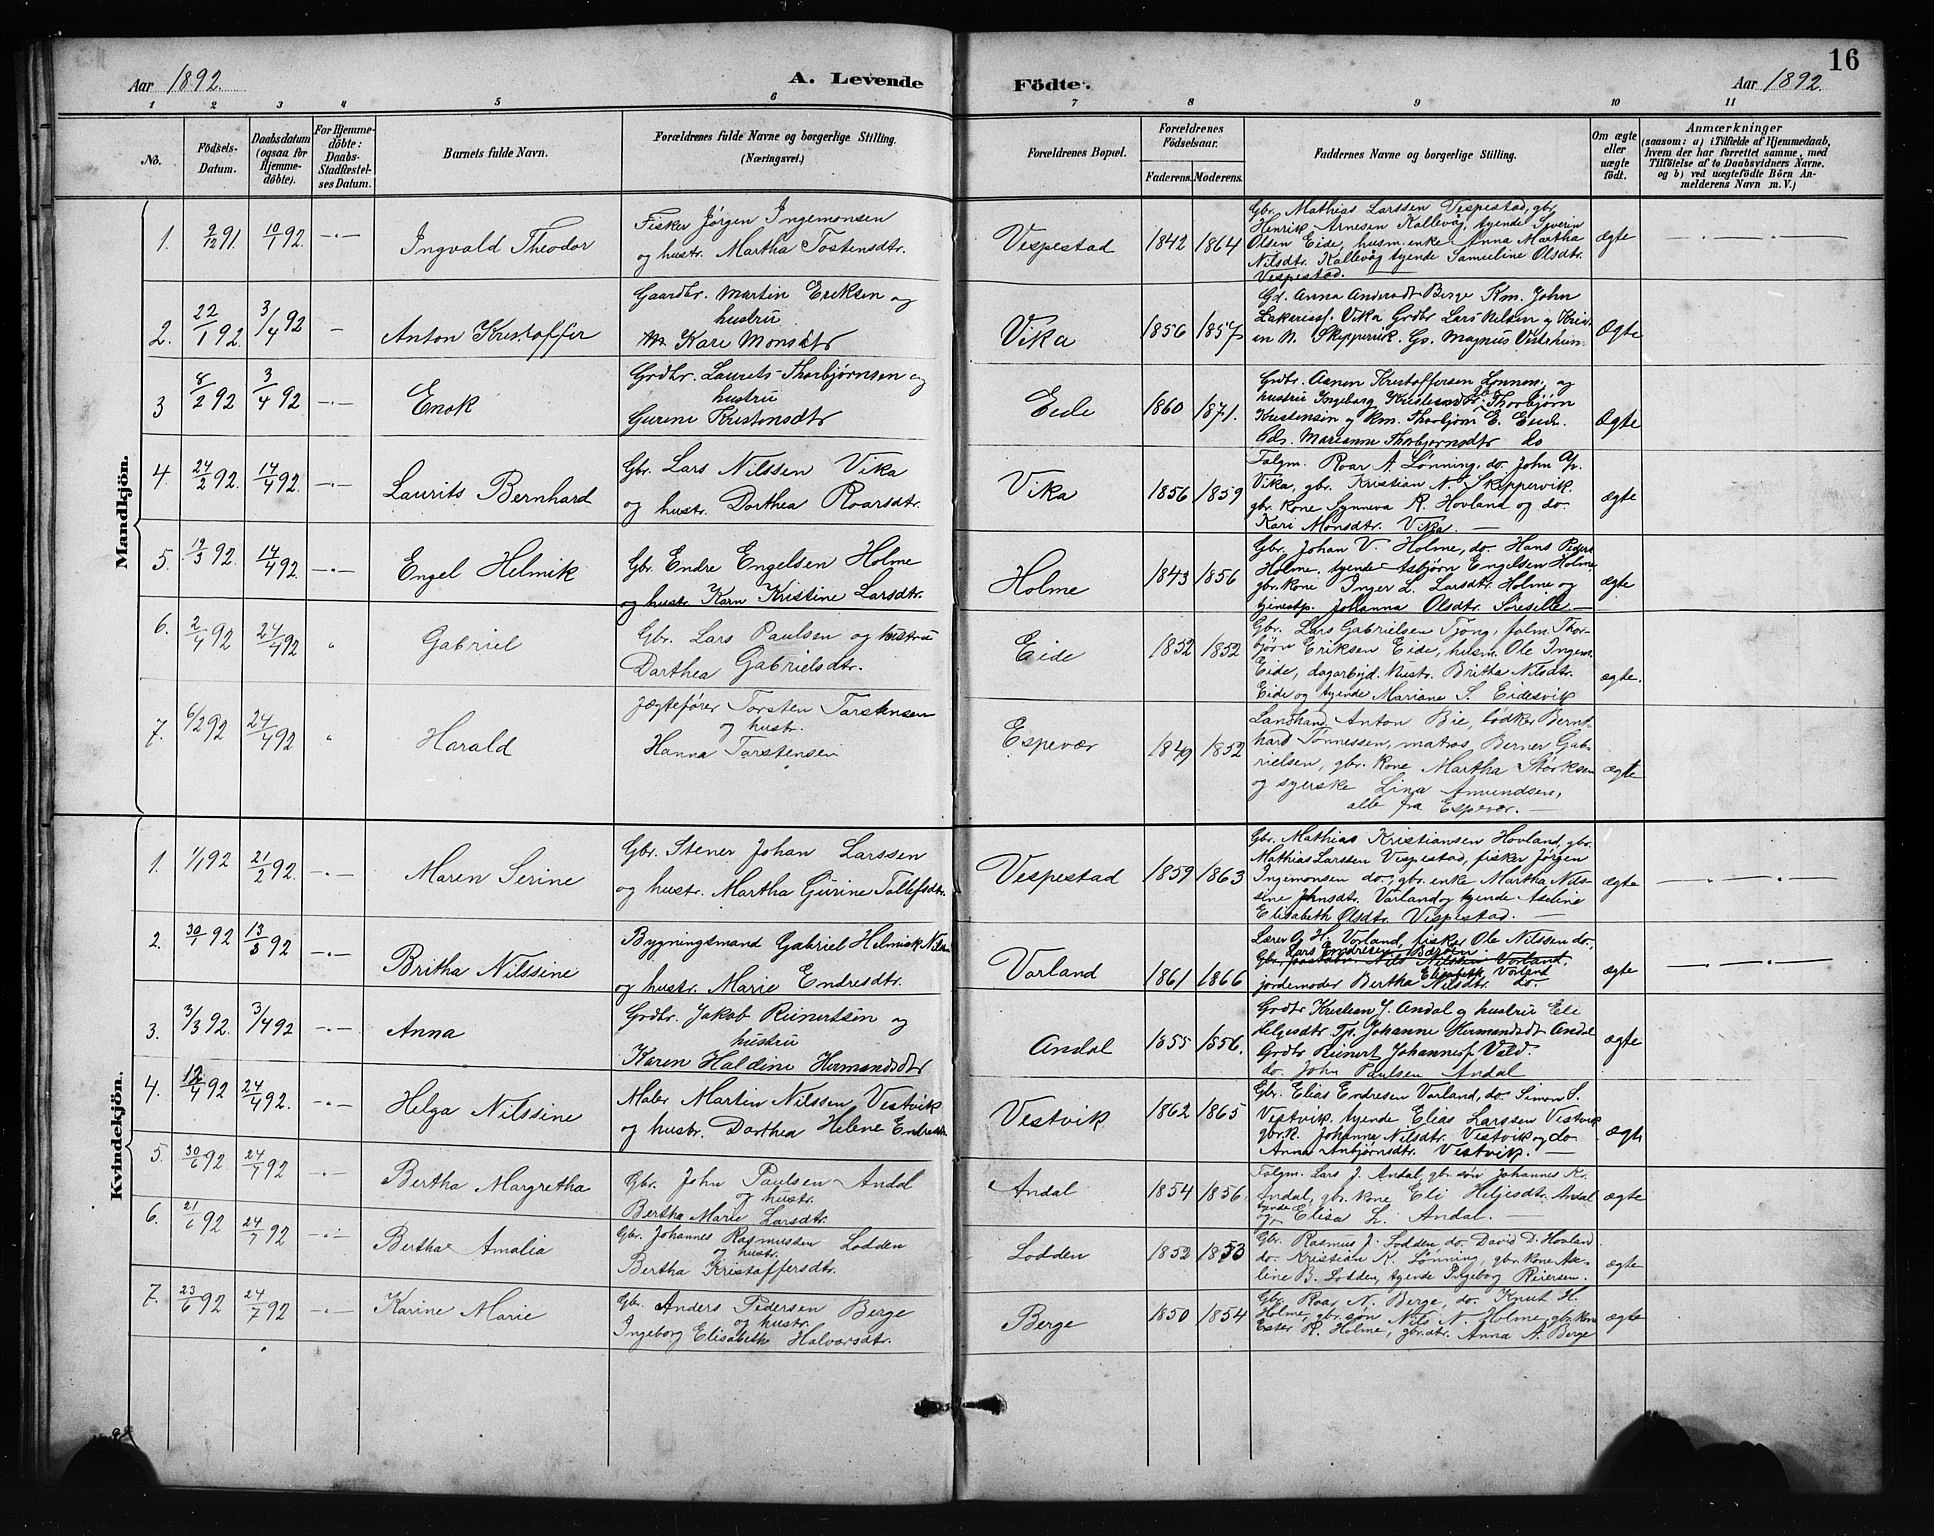 16
Aar 1892. A. Levende Födte. Aar 1892.
1 2 3 4 5 6 7 8 9 10 11
No.
Födsels-Datum.
Daabsdatum (ogsaa for Hjemme-döbte).
For Hjemme-döbte: Daabs-Stadfæstel-ses Datum.
Barnets fulde Navn.
Forældrenes fulde Navne og borgerlige Stilling.
(Næringsvei.)
Forældrenes Bopæl.
Forældrenes Födselsaar.
Faderens. Moderens.
Faddernes Navne og borgerlige Stilling.
Om ægte eller uægte födt.
Anmærkninger
(saasom: a) i Tilfælde af Hjemmedaab, hvem der har forrettet samme, med Tilföielse af to Daabsvidners Navne. og b) ved uægtefödte Börn Anmelderens Navn m. V.)
Mandkjön.
1. 9/12 91. 10/1 92 Ingvald Theodor
Fisker Jørgen Ingemonsen
og hustr. Martha Tostensdtr.
Vespestad 1842 1864
Gbr. Mathias Larssen Vespestad, gbr.
Henrik Arnesen Kallevåg, tyende Syverin
Olsen Eide, husm. enke Anna Martha
Nilsdtr. Kallevåg tyende Samueline Olsdtr.
Vespestad.
ægte
2. 22/1 92. 3/4 92 Anton Kristoffer
Gaardbr. Martin Eriksen og
hustru
Kari Monsdtr
Vika 1856 1857
Gd. Anna Andersdt Berge Km. John
Zakariass. Vika Grdbr Lars Nilsen og Krist-
en N. Skippervik. Gs. Magnus
Ægte
3 8/2 92 3/4 92 Enok
Grdbr. Laurits Thorbjørnsen og
hustru
Gurine Kristensdtr
Eide 1860 1871.
Grdbr. Asmen Kristoffersen Lønnen, og
hustru Ingeborg Thorbjørn
Kristensen og km. Thorbjørn E. Eide.
Gds. Marianne Thorbjørnsdtr do
Ægte
4. 24/2 92. 14/4 92. Laurits Bernhard
Gbr. Lars Nilssen Vika
og hustr. Dorthea Roarsdtr.
Vika 1856 1859
Folgm. Roar A. Lønning, do. John
Vika, gbr. Kristian N. Skippervik.
gbr. kone Synneva R. Hovland og do.
Kari Monsdtr. Vika. —
ægte
5. 19/3 92. 14/4 92. Engel Helmik
Gbr. Endre Engelsen Holme
og hustr. Karn Kristine Larsdtr.
Holme 1843 1856
Gbr. Johan V. Holme, do. Hans Peders
Holme, tyende Asbjørn Engelsen Holme
gbr. kone Inger L. Larsdtr. Holme og
tjenestp. Johanna Olsdtr. Søreselle. —
ægte
6. 2/4 92 24/4 92 Gabriel
Gbr. Lars Paulsen og hustru
Dorthea Gabrielsdtr.
Eide 1852 1852
Gbr. Lars Gabrielsen Tjong, folm. Thor-
bjørn Eriksen Eide, husm. Ole Ingem.
Eide, dagarbejd. hustr. Britha Nilsdtr.
Eide og tyende Mariane S. Eidesvik
ægte.
7. 6/2 92 24/4 92 Harald
Jægtefører Torsten Torstensen
og hustr.
Hanna Torstensen
Espevær 1849 1852
Landhand. Anton Bie, bødker Bernt-
hard Tønnessen, matros Berner Gab-
rielsen, gbr. kone Martha Størksen
og syerske Lina Amundsen,
alle fra Espevær. —
ægte
Kvindekjön.
1. 1/1 92 21/2 92. Maren Serine
Gbr. Stener Johan Larssen
og hustr. Martha Gurine Tollefsdtr.
Vespestad 1859 1863
Gbr. Mathias Kristiansen Hovland, gbr.
Mathias Larssen Vespestad, fisker Jørgen
Ingimonsen do., gbr. enke Martha Nils-
sine Johnsdtr. Vorland og tyende Aseline
Elisabeth Olsdtr. Vespestad. —
ægte
2. 30/1 92 13/3 92 Britha Nilssine
Bygningsmand Gabriel Helmik Nilsen
og hustr. Marie Endresdtr.
Vorland 1861 1866
Lærer O. H. Vorland, fisker Ole Nilssen do.
Lars Endresen Børøen.
Gbr. Nils Nilssen Vorland.
Elisabeth Vorland
jordemoder Bertha Nilsdtr. do.
ægte
3. 3/3 92. 3/4 92 Anna
Grdbr. Jakob Reinertsen og
hustru
Karen Haldine Hermandsdtr
Andal 1855 1856.
Grdbr Kristian J. Andal og hustru Eli
Heljesdtr. Tp. Johanne Hermandsdt Andal
Grdbr Reinert Johanness. Vald.
do. John Paulsen Andal
ægte
4. 12/4 92 24/4 92. Helga Nilssine
Maler Martin Nilssen Vestvik
og hustr. Dorthea Helene Endresdtr.
Vestvik 1862 1865
Gbr. Elias Endresen Vorland, do. Simon S.
Vestvik. tyende Elias Larssen Vestvik
gbr.k. Johanna Nilsdtr. Vestvik og do.
Anna Anbjørnsdtr. Vestvik. —
ægte
5. 30/6 92. 24/7 92 Bertha Margretha
Gbr. John Paulsen Andal
og hustr.
Bertha Marie Larsdtr.
Andal 1854 1856
Folgm. Lars J. Andal, gbr. søn Johannes K.
Andal, gbr. kone Eli Heljesdtr. Andal
og tyende Elisa L. Andal. —
ægte
6. 21/6 92 24/7 92 Bertha Amalia
Gbr. Johannes Rasmussen Lodden
og hustr.
Bertha Kristoffersdtr.
Lodden 1852 1853
Gbr. Rasmus J. Lodden do. David D. Hovland
do. Kristian K. Lønning, gbr. kone Ase-
line B. Lodden, tyende Ingeborg Reiersen.
ægte
7. 23/6 92 24/7 92 Karine Marie
Gbr. Anders Pedersen Berge
og hustr.
Ingeborg Elisabeth Halvorsdtr.
Berge 1850 1854
Gbr. Roar N. Berge, do. Knut H.
Holme, gbr. søn Nils N. Holme, gbr. kone
Ester R. Holme, gbr. dtr. Anna A. Berge
ægte